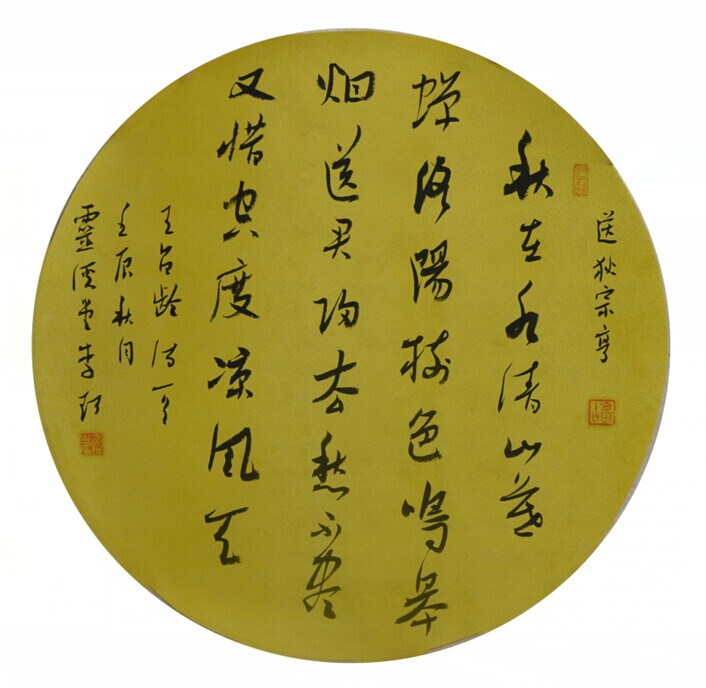 送狄宗亨
秋在水清山暮
蝉洛陽树色鸣皋
烟送君归去愁不尽
又惜空度凉风天
王昌龄诗一首
壬辰秋月
靈溪堂李